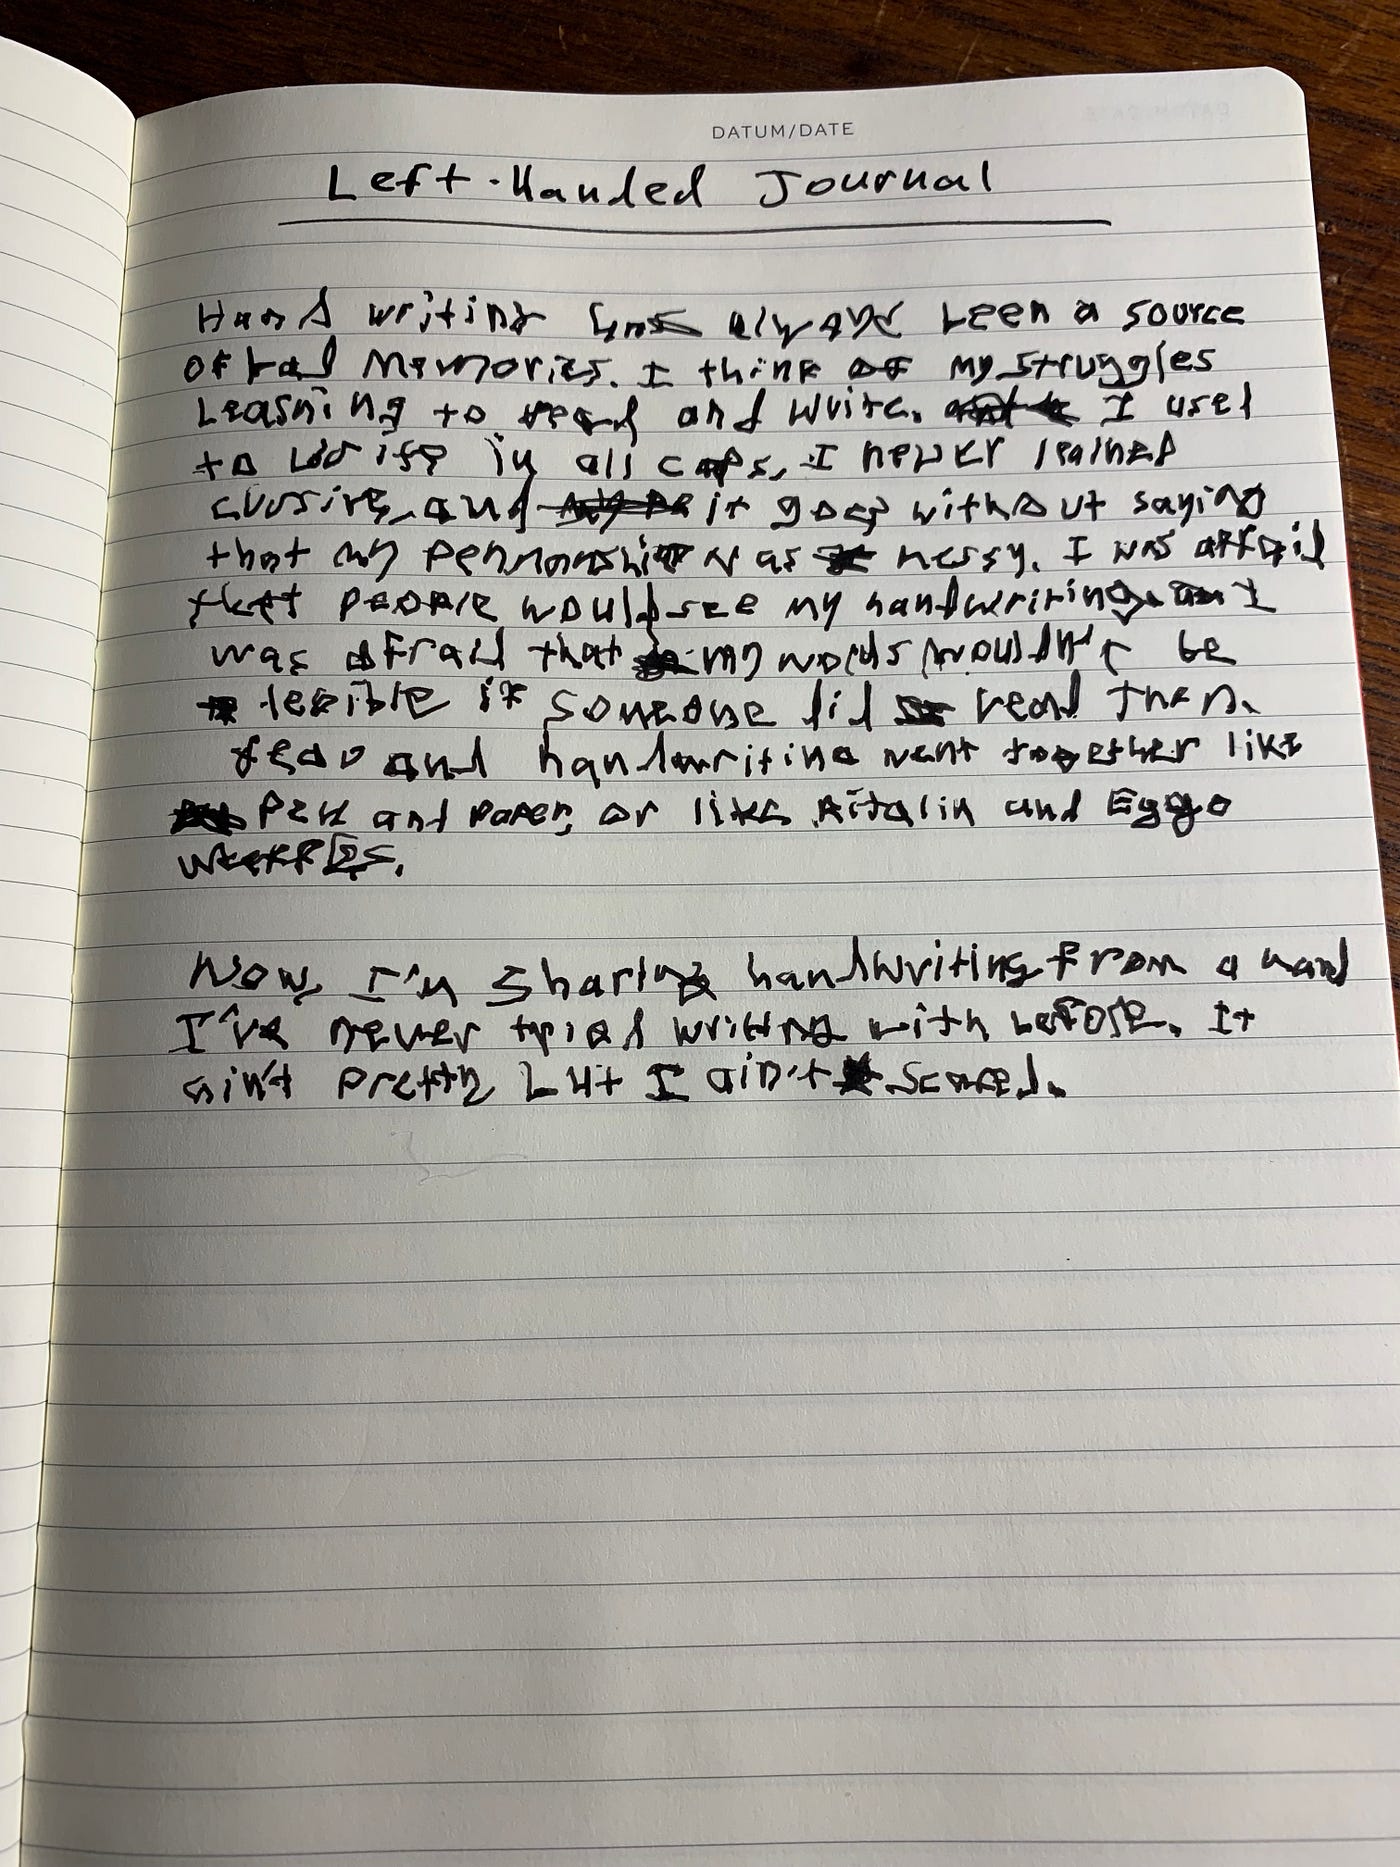 DATUM/DATE
Left-Handed Journal
Hand writing has always been a source
of bad memories. I think of my struggles
Learning to read and write. I used
to write in all caps, I never learned
cursive, and it goes without saying
that my penmanship was messy. I was affraid
that people would see my handwriting. I
was afraid that my words wouldn't be
legible if someone did read them.
Fear and handwriting went together like
Pen and Paper, or like Ritalin and Eggo
Waffles.
Now, I'm sharing handwriting from a hand
I've never tried writing with before. It
ain't pretty but I ain't scared.